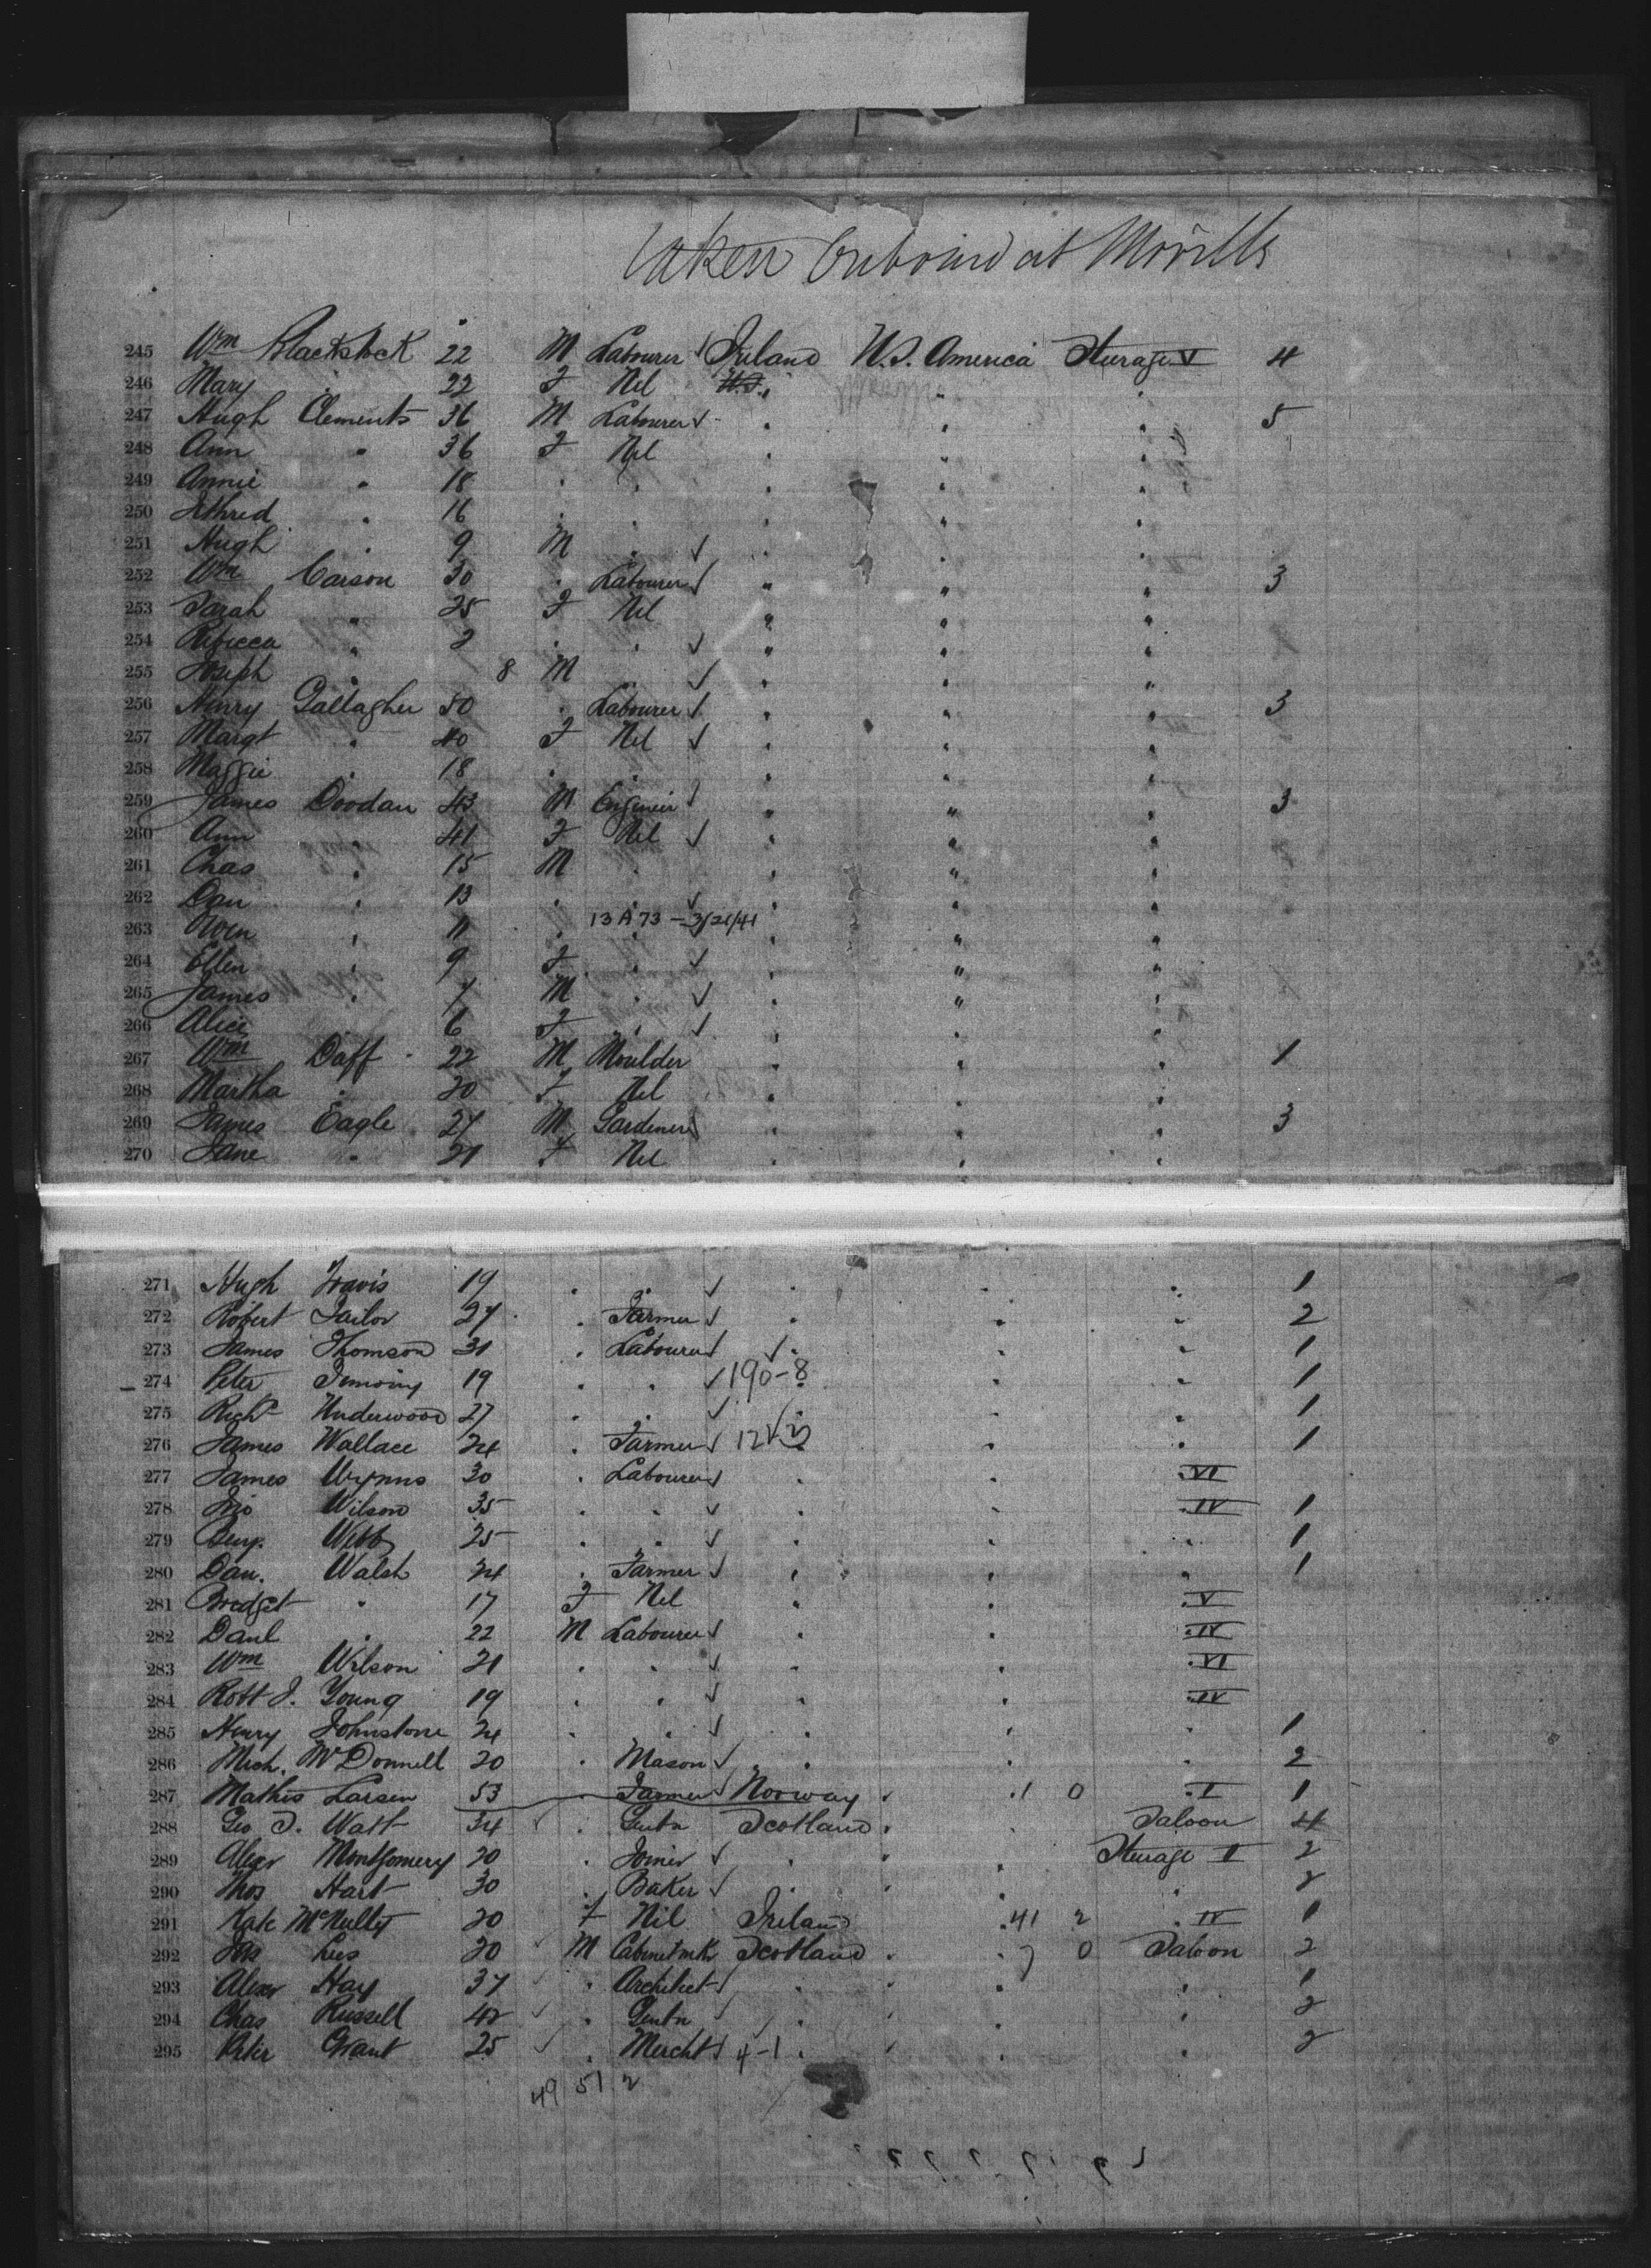 Taken Onboard at Moville
245 Wm Blackstock 22 M Labourer Ireland U.S. America Steerage V 4
246 Mary 22 F Nil U.S.
247 Hugh Clements 36 M Labourer 5
248 Ann " 36 F Nil
249 Annie " 18
250 16
251 Hugh 9 M
252 Wm Carson 30 Labourer " " " 3
253 Sarah " 25 F Nil " " "
254 Rebecca " 2 " " "
255 Joseph " 8 M
256 Henry Gallagher 50 Labourer 3
257 Margt " 40 F Nil
258 Maggie 18
259 James Doodan 43 M Engineer " 3
260 Ann 41 F Nil
261 Chas 15 M
262 Dan 13
263 Owen 11 13 A 73 - 3/21/41
264 Ellen 9 F
265 James 7 M
266 Alice 6 F
267 Wm Daff 22 M Moulder 1
268 Martha 20 F Nil
269 James Eagle 27 M Gardener 3
270 Jane " 21 F Nil
271 Hugh Travis 19 1
272 Robert Tailor 27 Farmer 2
273 James Thomson 31 Labourer 1
274 Peter 19 190-8 1
275 Richd Underwood 27 1
276 James Wallace 24 Farmer 1
277 James Wynns 30 Labourer VI
278 Jno Wilson 35 IV 1
279 Benj. Webb 25 1
280 Dan. Walsh 24 Farmer 1
281 Bredget " 17 F Nil V
282 Danl 22 M Labourer IV
283 Wm Wilson 21 VI
284 Robt J. Young 19 IV
285 Henry Johnstone 24 1
286 Mich. McDonnell 20 Mason 2
287 Mathis Larsen 53 Farmer Norway 1 0 I 1
288 Geo S. Watt 34 Gentn Scotland Saloon 4
289 Alexr Montgomery 20 Joiner Steerage II 2
290 Thos Hart 30 Baker 2
291 Kate McNulty 20 F Nil Ireland 41 2 IV 1
292 Jas Lees 20 M Cabinetmkr Scotland 7 0 Saloon 2
293 Alexr Hay 37 Architect 1
294 Chas Russell 42 Gentn 2
295 Peter Grant 25 Mercht 4-1 2
49 51 2